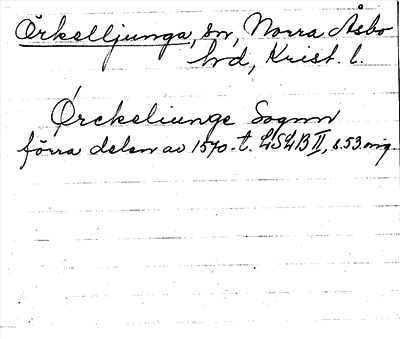 Örkelljunga, sn, Norra Åsbo
hrd, Krist. l.
Ørckeliunge Sognn
förra delen av 1570-t. LSLB II, s. 53. orig.